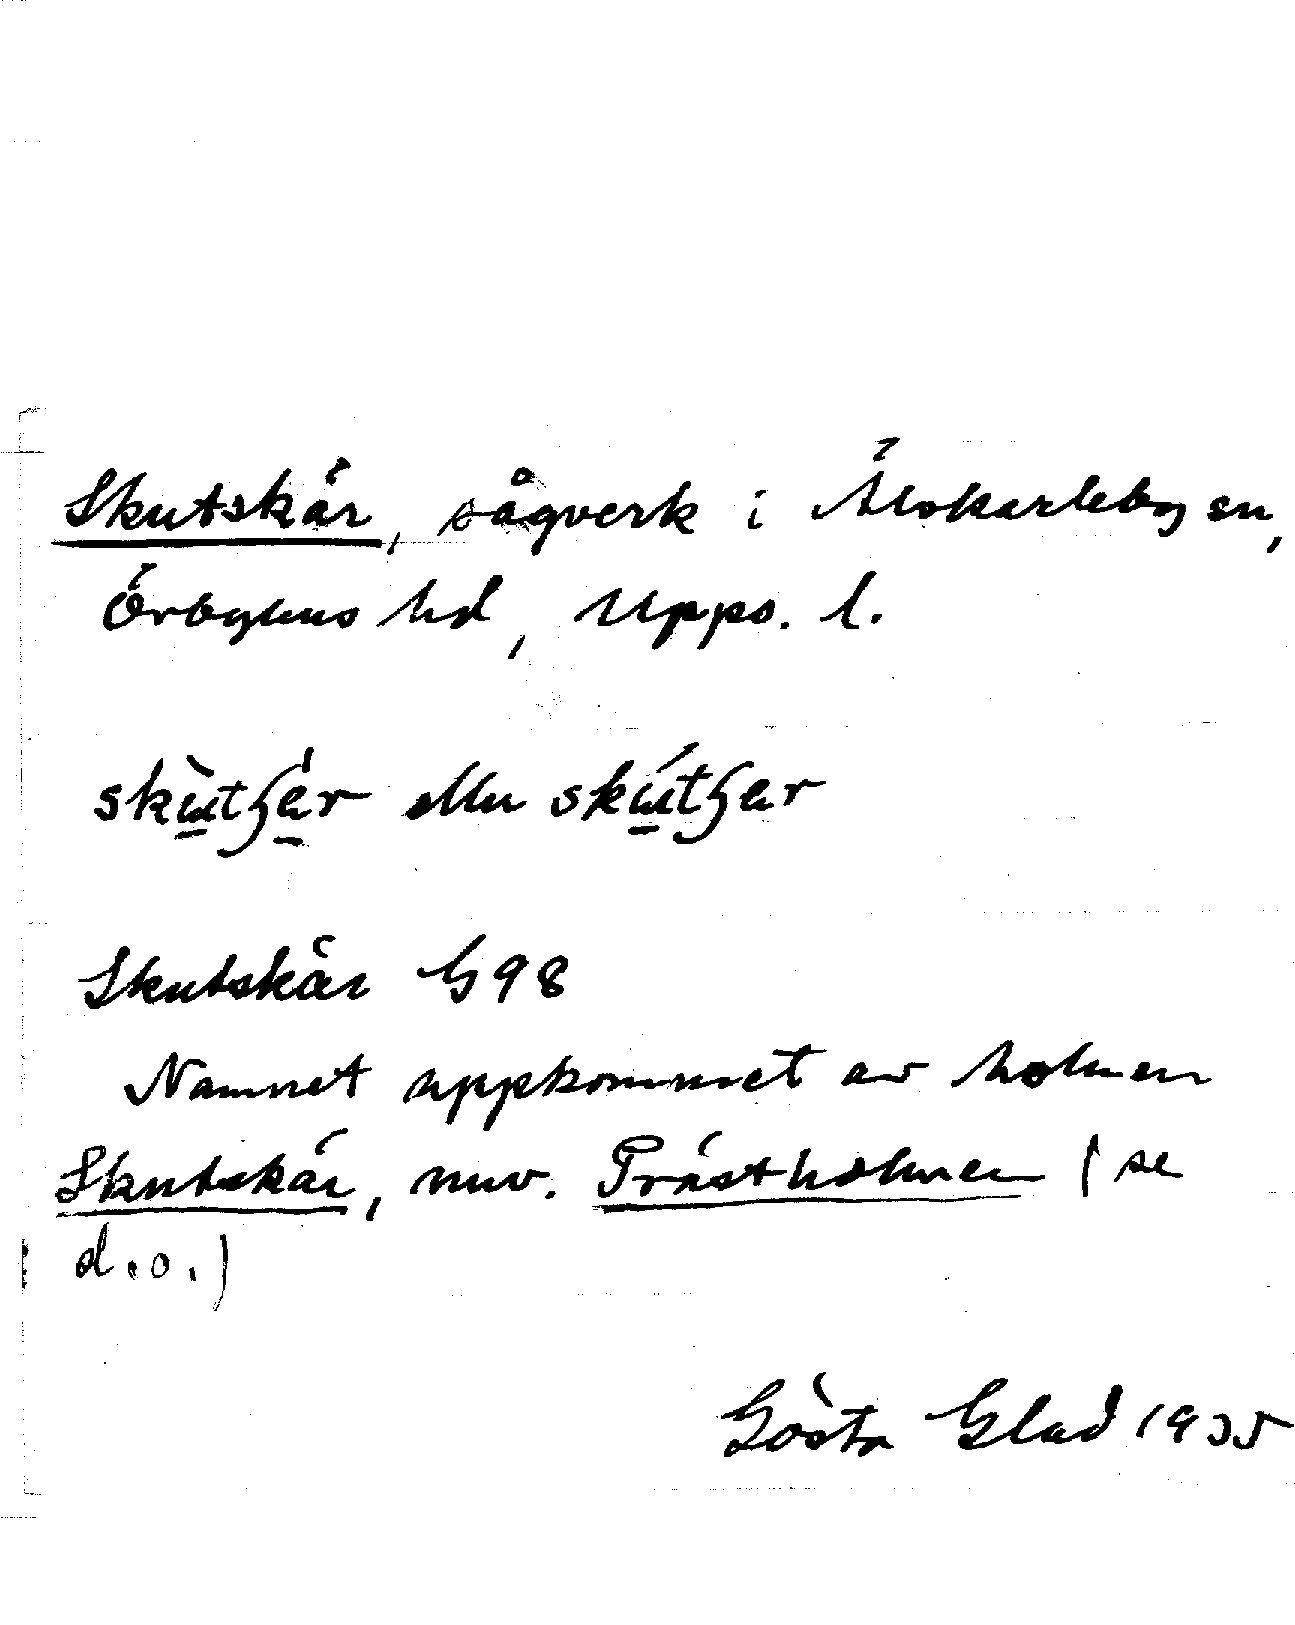 Skutskär, sågverk i Älvkarleby sn,
Örbyhus hd, Upps. l.
skùtʃàr eller skútʃar
Skutskär G98
Namnet uppkommet av holmen
Skutskär, nuv. Prästholmen (se
d.o.)
Gösta Glad 1935